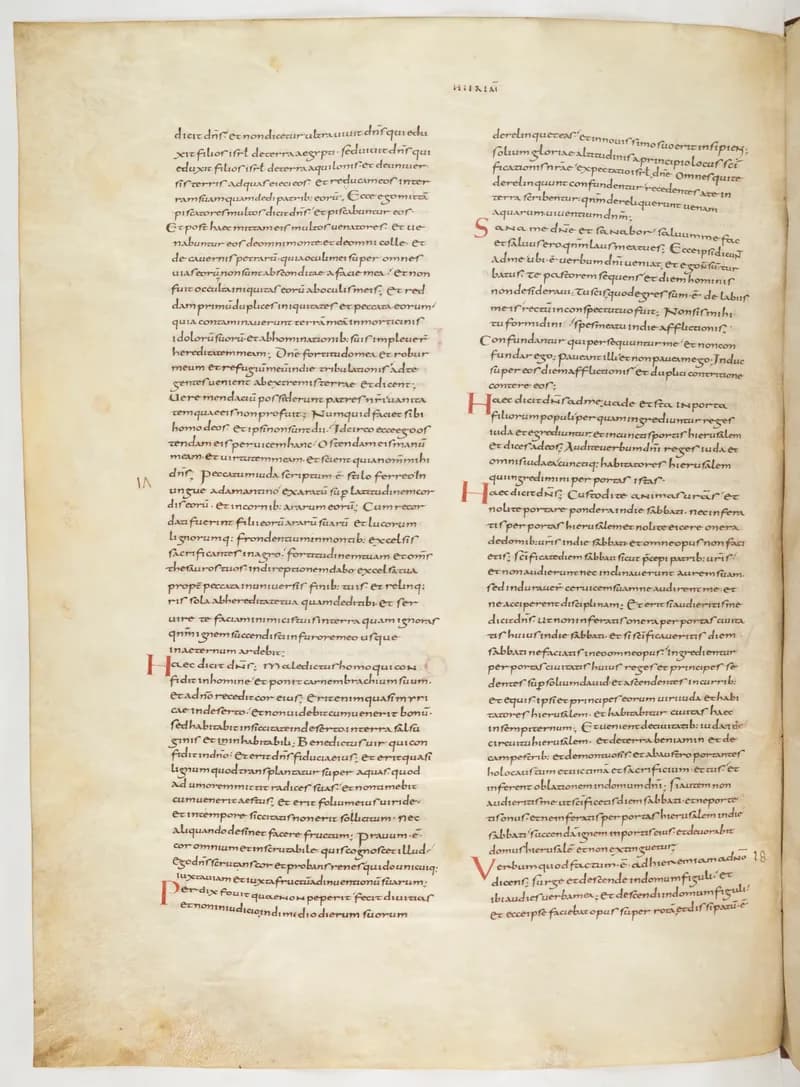 HIEREM̄
dicit dn̄s et non dicetur ultra uiuit dn̄s qui edu
xit filios isrl̄ de terra aegypti· sed uiuit dn̄s qui
eduxit filios isrl̄ de terra aquilonis et de uniuer
sis terris ad quas eieci eos· et reducam eos in ter
ram suam quam dedi patrib: eorū; Ecce ego mittā
piscatores multos dicit dn̄s et piscabuntur eos·
Et post haec mittam eis multos uenatores· Et ue
nabuntur eos de omni monte et de omni colle· et
de cauernis petrarū· quia oculi mei super omnes
uias eorū non sunt absconditae a facie mea· et non
fuit occulta iniquitas eorū ab oculis meis; Et red
dam primū duplices iniquitates et peccata eorum
quia contaminauerunt terrā meā in morticinis
idolorū suorū· et abhominationib: suis impleuer̄
hereditatem meam; Dn̄e fortitudo mea et robur
meum et refugiū meū in die tribulationis ad te
gentes uenient ab extremis terrae et dicent;
Uere mendaciū possederunt patres nr̄i uanita
tem quae eis non profuit; Numquid faciet sibi
homo deos· et ipsi non sunt dii· Idcirco ecce ego os
tendam eis per uicem hanc· Ostendam eis manū
meam et uirtutem meam· et scient quia nomen mihi
dn̄s; Peccatum iuda scriptum ē· stilo ferreo in
ungue adamantino exaratū sup̄ latitudinem cor
dis eorū· et in cornib: ararum eorū; Cum recor
dati fuerint filii eorū ararū suarū et lucorum
lignorumq; frondentium in montib: excelsis
sacrificantes in agro· fortitudinem tuam et om̄s
thesauros tuos in direptionem dabo excelsa tua
propt̄ peccata in uniuersis finib: tuis· et relinq;
ris sola ab hereditate tua quam dedi tibi· et ser
uire te faciam inimicis tuis in terra quam ignoras
qn̄m ignem succendisti in furore meo usque
in aeternum ardebit;
Haec dicit dn̄s; Maledictus homo qui con
fidit in homine· et ponit carnem brachium suum·
et a dn̄o recedit cor eius; Erit enim quasi myri
cae in deserto· et non uidebit cum uenerit bonū·
sed habitabit in siccitate in deserto in terra salsu
ginis et inhabitabili; Benedictus uir qui con
fidit in dn̄o· et erit dn̄s fiducia eius; et erit quasi
lignum quod transplantatur super aquas quod
ad umorem mittit radices suas· et non timebit
cum uenerit aestus; et erit folium eius uiride·
et in tempore siccitatis non erit sollicitum· nec
aliquando desinet facere fructum; Prauum ē·
cor omnium et inscrutabile· quis cognoscet illud
ego dn̄s scrutans cor et probans renes qui do unicuiq;
iuxta uiam et iuxta fructū adinuentionū suarum;
Perdix fouit quae non peperit· fecit diuitias
et non in iudicio in dimidio dierum suorum
derelinquet eas· et in nouissimo suo erit insipiens;
solium gloriae altitudinis a principio locus sc̄i
ficationis nr̄ae expectatio isrl̄ dn̄e· Omnes qui te
derelinquunt confundentur recedentes a te in
terra scribentur· qn̄m dereliquerunt uenam
aquarum uiuentium dn̄m;
Sana me dn̄e et sanabor· saluum me fac
et saluus ero qn̄m laus mea tu es; Ecce ipsi dicunt
ad me ubi ē uerbum dn̄i ueniat; et ego n̄ sum tur
batus· te pastorem sequens et diem hominis
non desideraui· Tu scis quod egressum ē· de labiis
meis rectū in conspectu tuo fuit; Non sis mihi
tu formidini spes mea tu in die afflictionis;
Confundantur qui persequuntur me· et non con
fundar ego; paueant illi et non paueam ego· Induc
super eos diem afflictionis et duplici contritione
contere eos;
Haec dicit dn̄s ad me; uade et sta in porta
filiorum populi per quam ingrediuntur reges
iuda et egrediuntur· et in cunctis portis hierusalem
et dices ad eos; Audite uerbum dn̄i reges iuda et
omnis iudaea cunctiq; habitatores hierusalem
qui ingredimini per portas istas·
Haec dicit dn̄s; Custodite animas uras̄ et
nolite portare pondera in die sabbati· nec infera
tis per portas hierusalem et nolite eicere onera
de domib: uris̄ in die sabbati· et omne opus non faci
etis; sc̄ificate diem sabbati sicut p̄cepi patrib: uris̄
et non audierunt nec inclinauerunt aurem suam·
sed indurauer̄ ceruicem suam ne audirent me· et
ne acciperent disciplinam; Et erit si audieritis me
dicit dn̄s· Ut non inferatis onera per portas ciuita
tis huius in die sabbati· et si sc̄ificaueritis diem
sabbati ne faciatis in eo omne opus· Ingredientur
per portas ciuitatis huius reges et principes se
dentes sup̄ solium dauid et ascendentes in currib:
et equis· ipsi et principes eorum uiri iuda et habi
tatores hierusalem· et habitabitur ciuitas haec
in sempiternum; Et uenient de ciuitatib: iuda et de
circuitu hierusalem· et de terra beniamin et de
campestrib: et de montuosis· et ab austro portantes
holocaustum et uictimā et sacrificium et tus· et
inferent oblationem in domum dn̄i; Si autem non
audieritis me ut sc̄ificetis diem sabbati· et ne porte
tis onus· et ne inferatis per portas hierusalem in die
sabbati succendā ignem in portis eius· et deuorabit
domus hierusalē et non extinguetur;
Verbum quod factum ē· ad hieremiam a dn̄o 18
dicens; surge et descende in domum figuli· et
ibi audies uerba mea; et descendi in domum figuli
et ecce ipse faciebat opus super rotā· et dissipatū ē